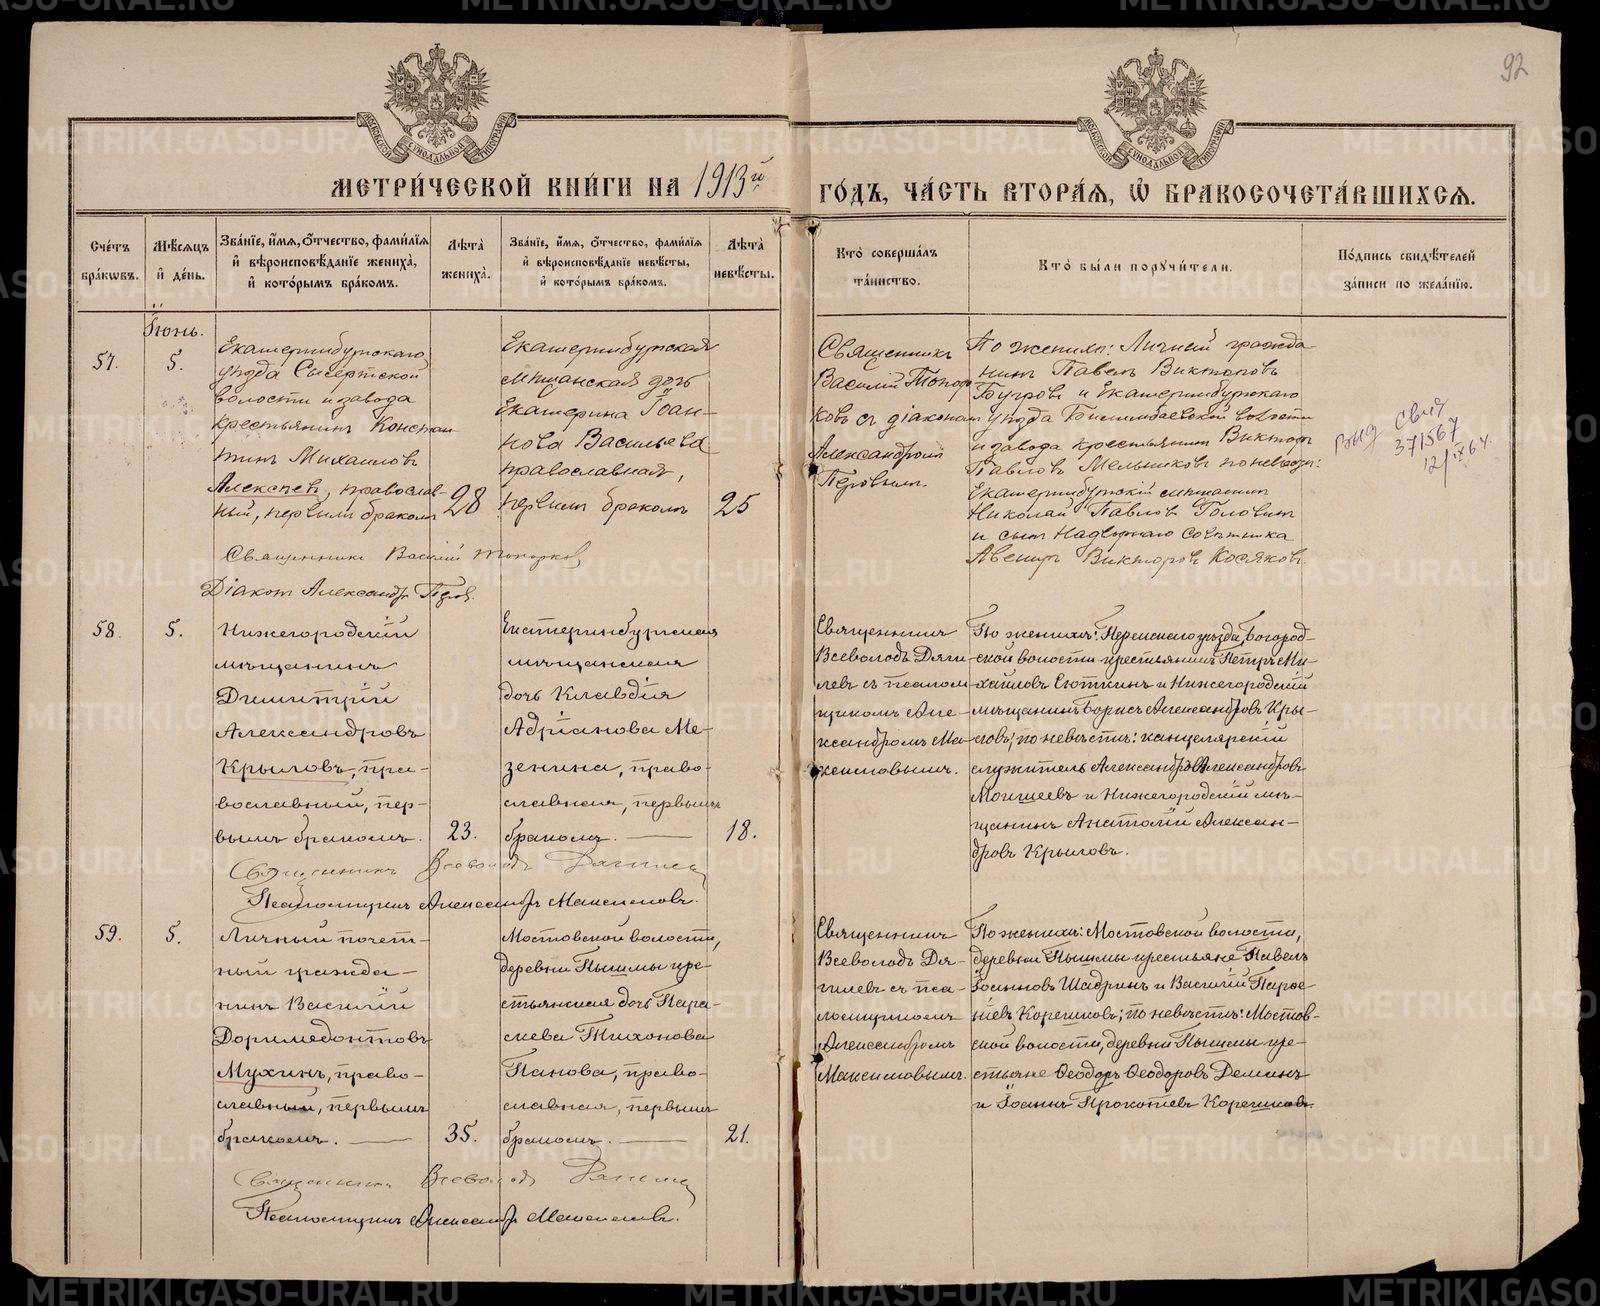 92
МЕТРИ́ЧЕСКОЙ КНИ́ГИ НА 1913й ГО́ДЪ, ЧА́СТЬ ВТОРА́Я, Ѽ БРАКОСОЧЕТА́ВШИХСЯ.
Сче́тъ бра́кѡвъ.
Мѣ́сяцъ и҆ де́нь.
Зва́нїе, и҆́мя, ѻ҆́тчество, фами́лїя и҆ вѣроисповѣ́данїе жениха̀, и҆ кото́рымъ бра́комъ.
Лѣ́та̀ жениха̀.
Зва́нїе, и҆́мя, ѻ҆́тчество, фами́лїя и҆ вѣроисповѣ́данїе невѣ́сты, и҆ кото́рымъ бра́комъ.
Лѣ́та̀ невѣ́сты.
Кто̀ соверша́лъ та́инство.
Кто̀ бы́ли порꙋчи́тели.
По́дпись свидѣ́телей за́писи по жела́нїю.
Іюнь.
57.
5.
Екатеринбургскаго
уѣзда Сысертской
волости и завода
крестьянинъ Констан
тинъ Михаиловъ
Алексѣевъ, православ-
ный, первымъ бракомъ
28
Екатеринбургская
мѣщанская дочь
Екатерина Іоан-
нова Васильева
православная,
первымъ бракомъ
25
Священникъ
Василій Топор
ковъ съ діакономъ
Александромъ
Перовымъ.
По женихѣ: Личный гражда
нинъ Павелъ Викторовъ
Бугровъ и Екатеринбургскаго
уѣзда Билимбаевской волости
и завода крестьянинъ Викторъ
Павловъ Мельниковъ по невѣстѣ:
Екатеринбургскій мѣщанинъ
Николай Павловъ Головинъ
и сынъ Надворнаго совѣтника
Авениръ Викторовъ Косяковъ.
371567
12/IX 64.
Священникъ Василій Топорковъ
Діаконъ Александръ Перовъ.
58.
5.
Нижегородскій
мѣщанинъ
Димитрій
Александровъ
Крыловъ, пра-
вославный, пер-
вымъ бракомъ.
23.
Екатеринбургская
мѣщанская
дочь Клавдія
Адріанова Ме-
зенина, право-
славная, первымъ
бракомъ.
18.
Священникъ
Всеволодъ Дяги
левъ съ псалом
щикомъ Але-
ксандромъ Ма-
ксимовымъ.
По женихѣ: Пермскаго уѣзда, Богород-
ской волости крестьянинъ Петръ Ми-
хайловъ Сюткинъ и Нижегородскій
мѣщанинъ Борисъ Александровъ Кры-
ловъ; по невѣстѣ: канцелярскій
служитель Александръ Александровъ
Моишеевъ и Нижегородскій мѣ-
щанинъ Анатолій Алексан-
дровъ Крыловъ.
Священникъ Всеволодъ Дягилевъ
Псаломщикъ Александръ Максимовъ.
59.
5.
Личный почет-
ный гражда-
нинъ Василій
Доримедонтовъ
Мухинъ, право-
славный, первымъ
бракомъ.
35.
Мостовской волости,
деревни Пышмы кре-
стьянская дочь Пара-
скева Тихонова
Панова, право-
славная, первымъ
бракомъ.
21.
Священникъ
Всеволодъ Дя-
гилевъ съ пса-
ломщикомъ
Александромъ
Максимовымъ.
По женихѣ: Мостовской волости,
деревни Пышмы крестьяне Павелъ
Іоанновъ Шадринъ и Василій Парѳе-
ніевъ Корешковъ; по невѣстѣ: Мостов-
ской волости, деревни Пышмы кре-
стьяне Ѳеодоръ Ѳеодоровъ Деминъ
и Іоаннъ Прокопіевъ Корешковъ.
Священникъ Всеволодъ Дягилевъ
Псаломщикъ Александръ Максимовъ.
METRIKI.GASO-URAL.RU